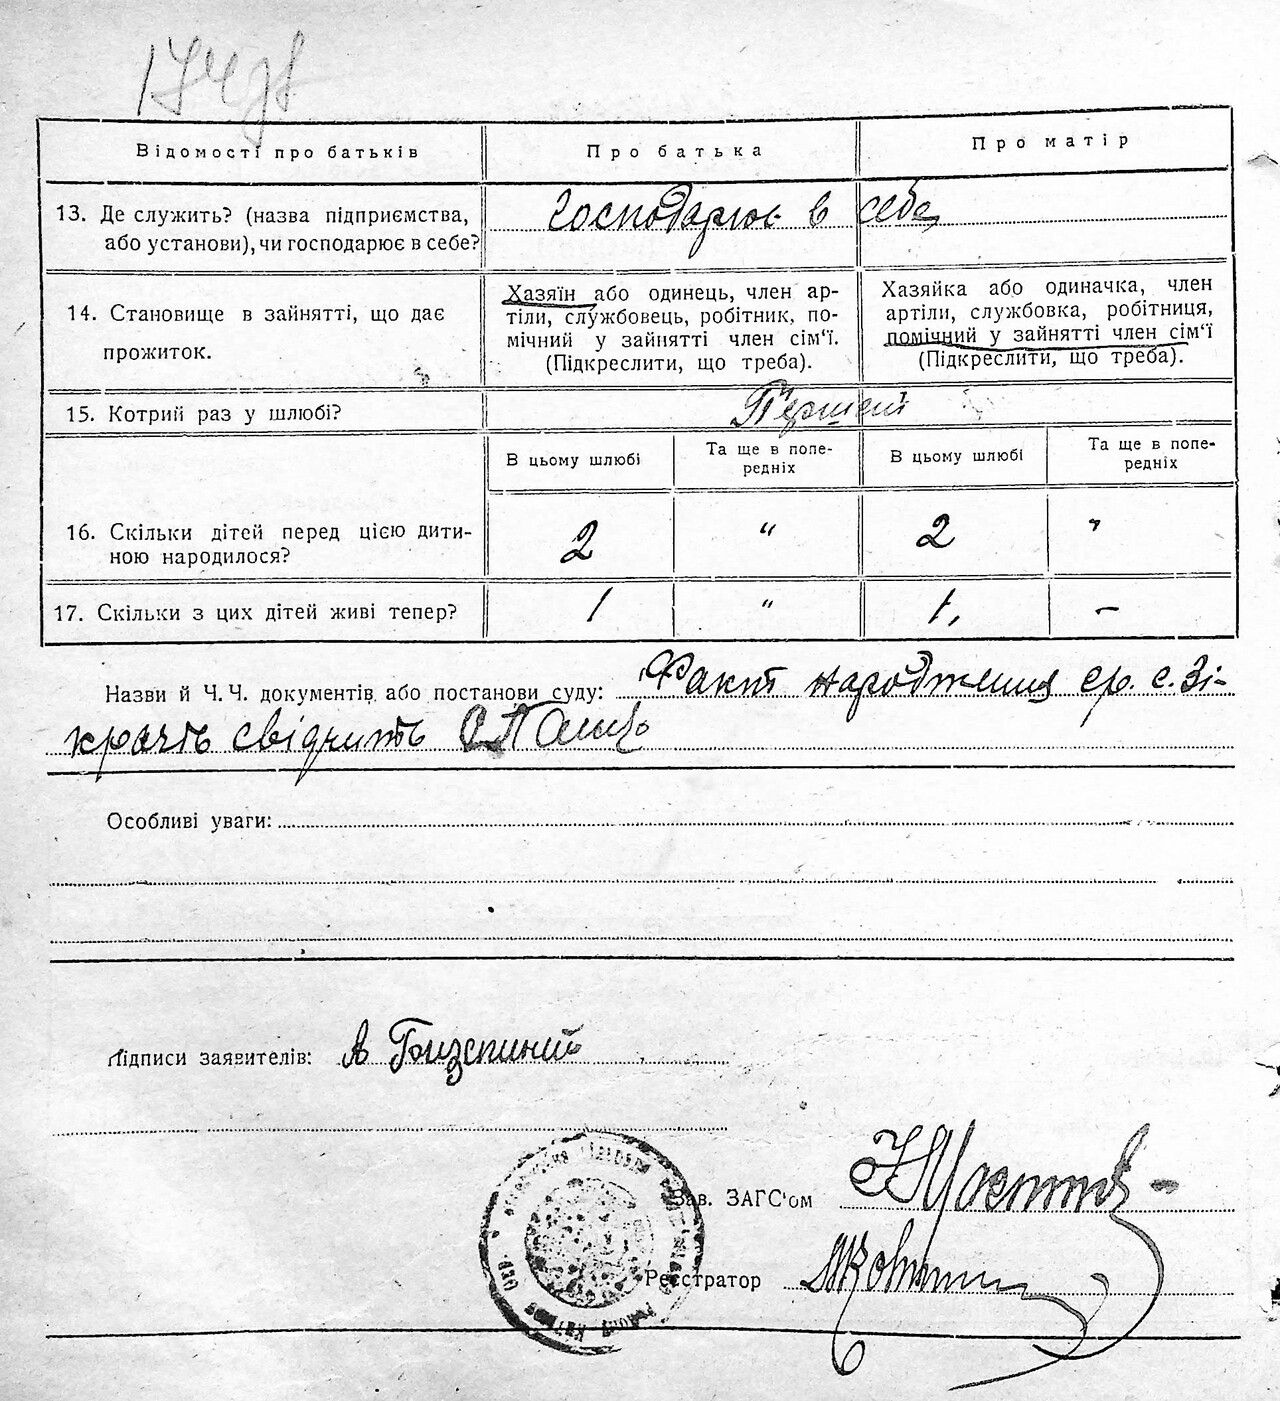 174 зв
Відомості про батьків
Про батька
Про матір
13. Де служить? (назва підприємства,
або установи), чи господарює в себе?
господарює в себе
14. Становище в зайнятті, що дає
прожиток.
Хазяїн або одинець, член ар-
тілі, службовець, робітник, по-
мічний у зайнятті член сім'ї.
(Підкреслити, що треба).
Хазяйка або одиначка, член
артілі, службовка, робітниця,
помічний у зайнятті член сім'ї
(Підкреслити, що треба).
15. Котрий раз у шлюбі?
Перший
В цьому шлюбі
Та ще в попе-
редніх
В цьому шлюбі
Та ще в попе-
редніх
16. Скільки дітей перед цією дити-
ною народилося?
2 " 2 "
17. Скільки з цих дітей живі тепер?
1 " 1, –
Назви й Ч.Ч. документів або постанови суду: Факт народження ср. с. Зі-
крачь свідчить
Особливі уваги:
Підписи заявителів: А
Зав. ЗАГС'ом
Реєстратор